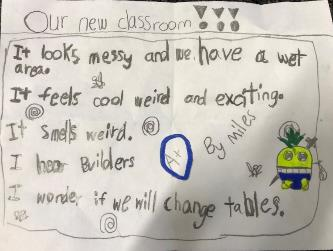 Our new classroom!!!
It looks messy and we have a wet
area.
It feels cool weird and exciting.
It smells weird.
I hear Builders
By Miles
I wonder if we will change tables.